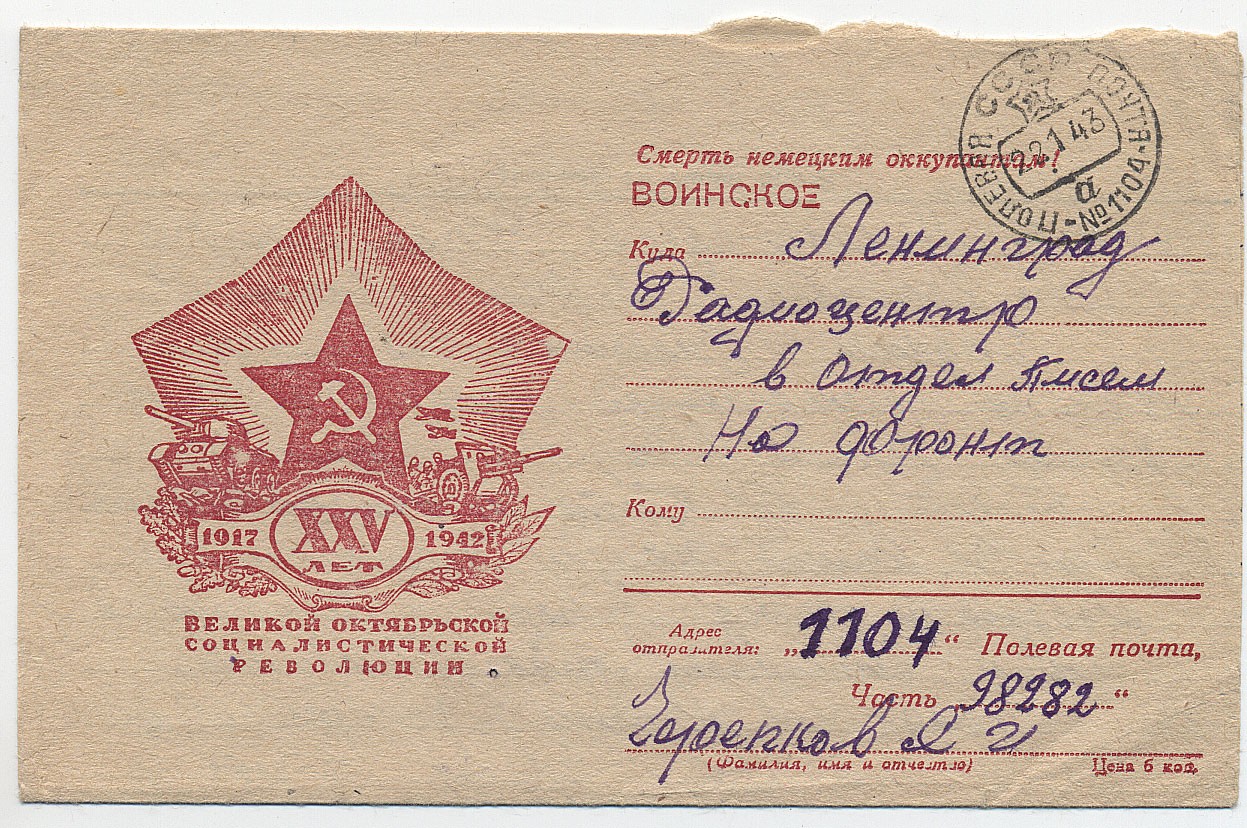 СССР
ПОЛЕВАЯ ПОЧТА - №1104 -
22.1.43
а
Смерть немецким оккупантам!
ВОИНСКОЕ
Куда Ленинград
Радиоцентр
в отдел Писем
На фронт
Кому
1917 XXV 1942
ЛЕТ
ВЕЛИКОЙ ОКТЯБРЬСКОЙ
СОЦИАЛИСТИЧЕСКОЙ
РЕВОЛЮЦИИ
Адрес
отправителя: „1104“ Полевая почта,
Часть 98282“
Черепков Я И
(Фамилия, имя и отчество) Цена 6 коп.